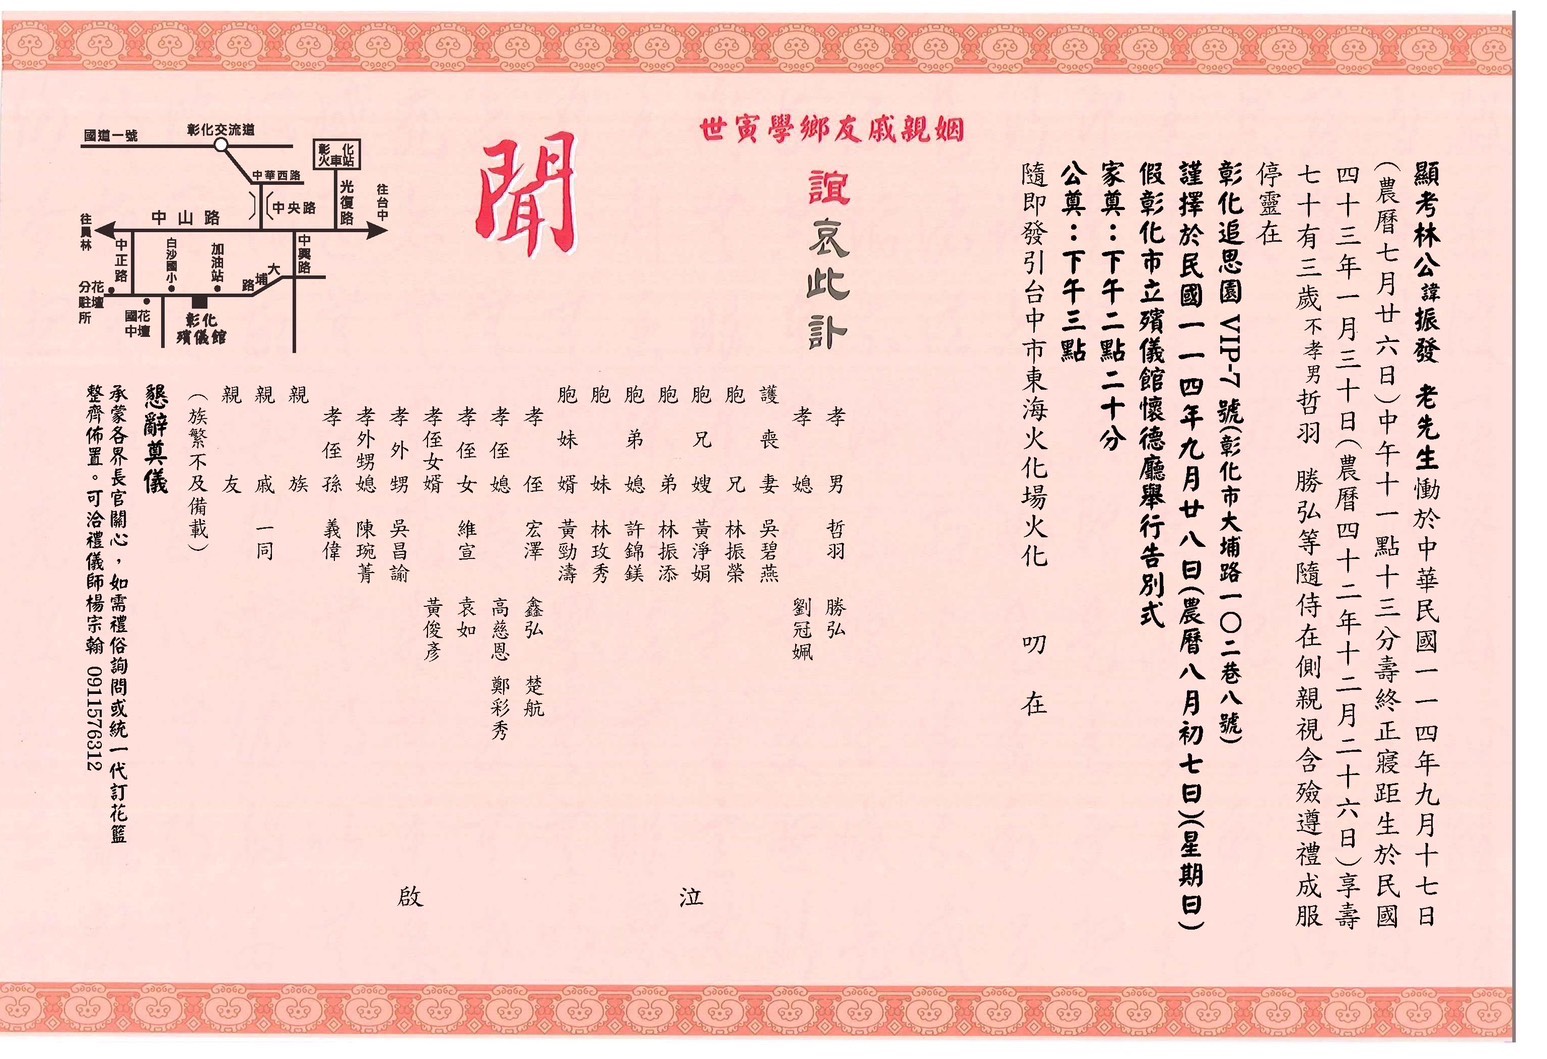 顯考林公諱振發 老先生慟於中華民國一一四年九月十七日
(農曆七月廿六日)中午十一點十三分壽終正寢距生於民國
四十三年一月三十日(農曆四十二年十二月二十六日)享壽
七十有三歲不孝男哲羽 勝弘等隨侍在側親視含殮遵禮成服
停靈在
彰化追思園 VIP-7 號(彰化市大埔路一〇二巷八號)
謹擇於民國一一四年九月廿八日(農曆八月初七日)(星期日)
假彰化市立殯儀館懷德廳舉行告別式
家奠：下午二點二十分
公奠：下午三點
隨即發引台中市東海火化場火化 叨 在
姻親戚友鄉學寅世
誼哀此訃
聞
孝男 哲羽 勝弘
孝媳 劉冠姵
護喪妻 吳碧燕
胞兄 林振榮
胞兄嫂 黃淨娟
胞弟 林振添
胞弟媳 許錦鎂
胞妹 林玫秀
胞妹婿 黃勁濤
孝侄 宏澤 鑫弘 楚航
孝侄媳 高慈恩 鄭彩秀
孝侄女 維宣 袁如
孝侄女婿 黃俊彥
孝外甥 吳昌諭
孝外甥媳 陳琬菁
孝侄孫 義偉
親族
親戚 一同
親友
(族繁不及備載)
泣
啟
懇辭奠儀
承蒙各界長官關心，如需禮俗詢問或統一代訂花籃
整齊佈置。可洽禮儀師楊宗翰 0911576312
國道一號
彰化交流道
彰化
火車站
中華西路
光復路
往台中
中央路
中山路
往員林
中正路
白沙國小
加油站
中興路
大埔路
花壇
分駐所
花壇
國中
彰化
殯儀館